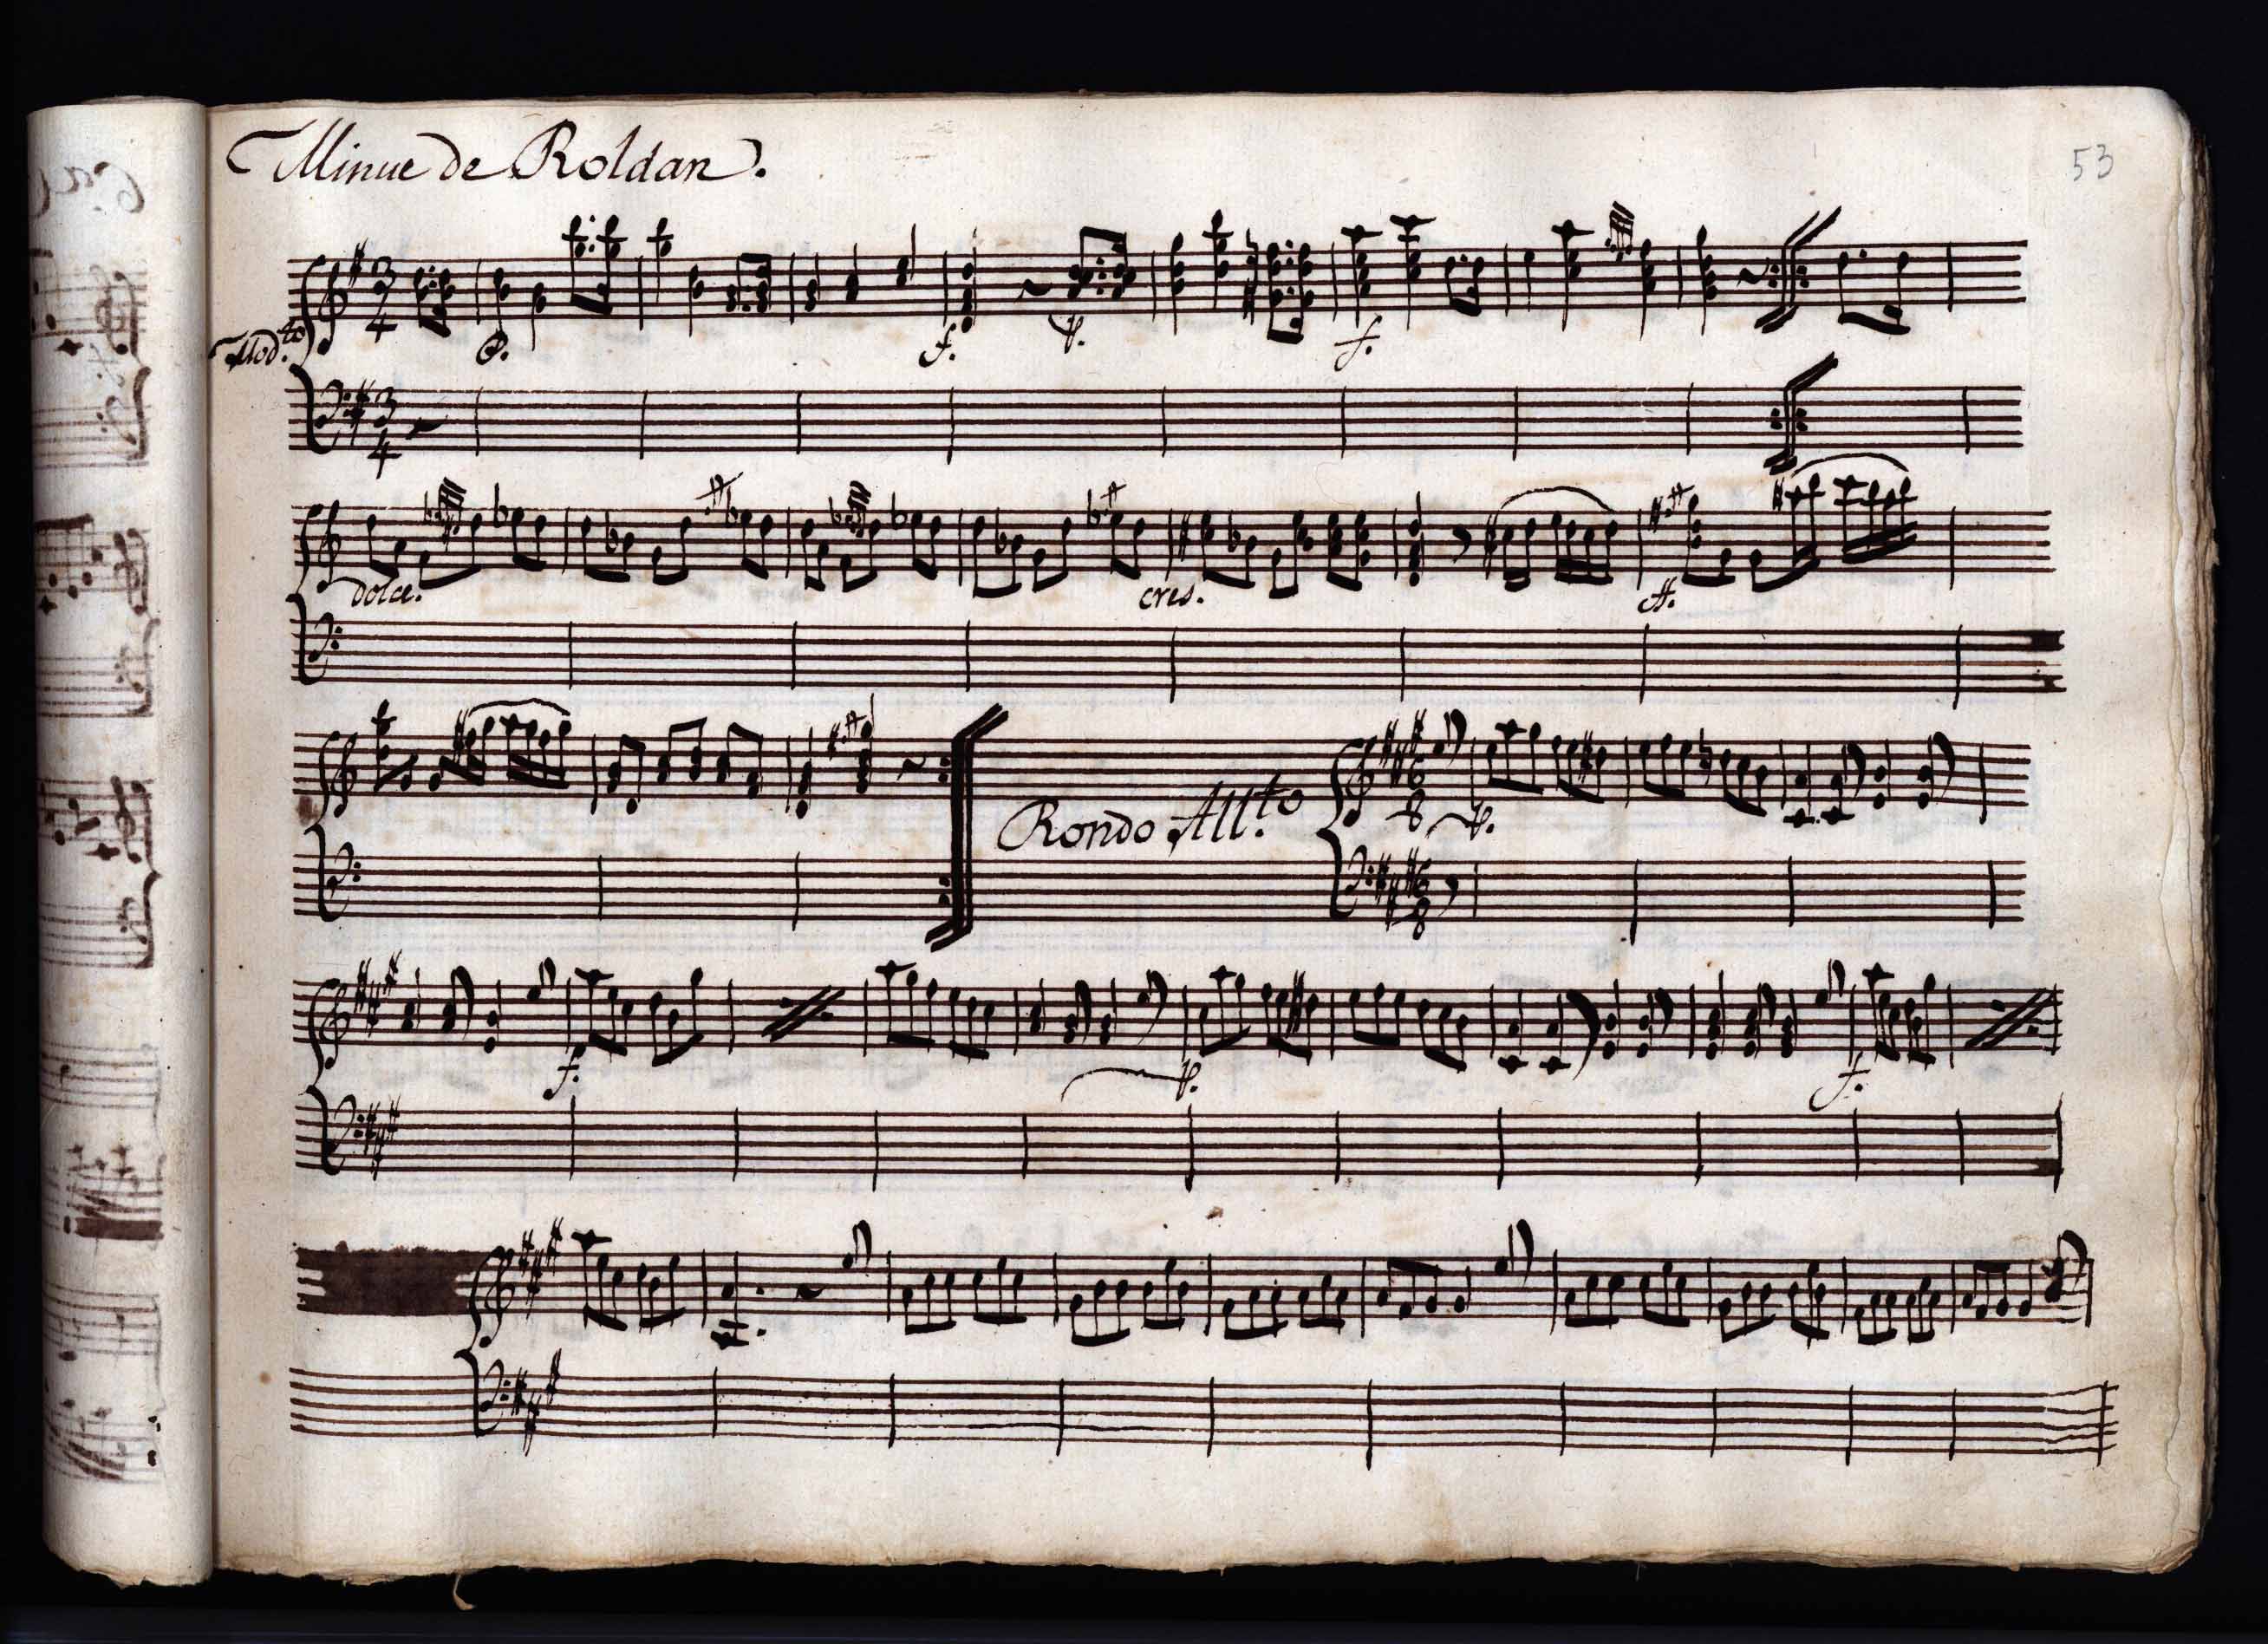 Minue de Roldan.
53
3
4
Mod.to
P.
f.
p.
f.
3
4
dolce.
cres.
ff.
Rondo All.to
6
8
p.
6
8
f.
p.
f.